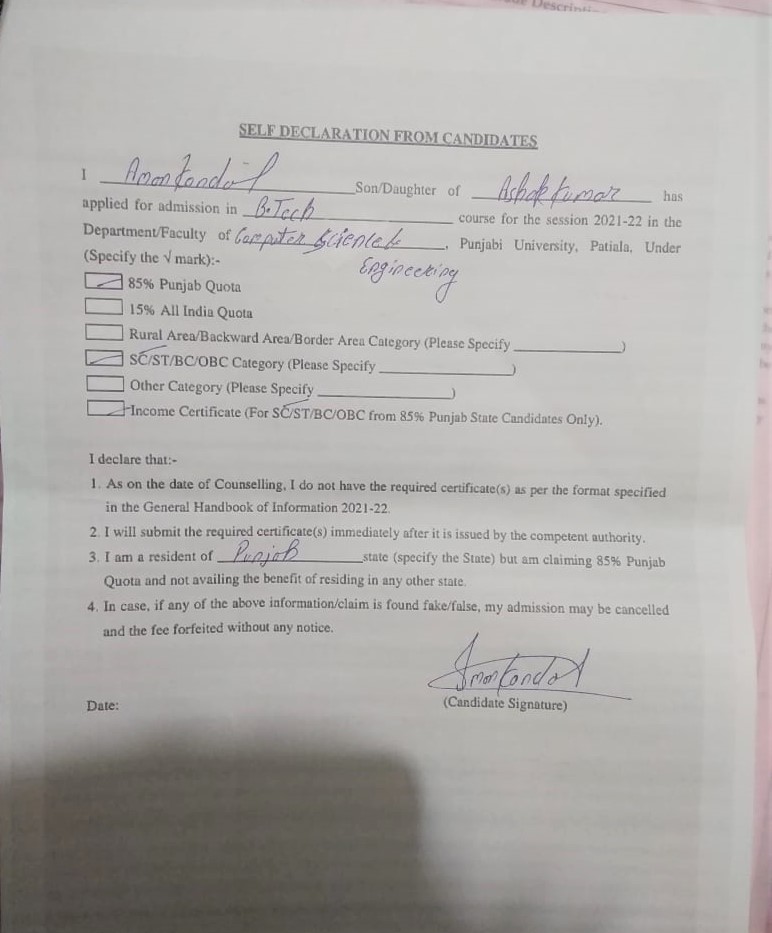 Descripti
SELF DECLARATION FROM CANDIDATES
I Aman Kandal Son/Daughter of Ashok Kumar has
applied for admission in B.Tech course for the session 2021-22 in the
Department/Faculty of Computer Science & , Punjabi University, Patiala, Under
Engineering
(Specify the √ mark):-
85% Punjab Quota
15% All India Quota
Rural Area/Backward Area/Border Area Category (Please Specify ____________)
SC/ST/BC/OBC Category (Please Specify ____________)
Other Category (Please Specify ____________)
Income Certificate (For SC/ST/BC/OBC from 85% Punjab State Candidates Only).
I declare that:-
1. As on the date of Counselling, I do not have the required certificate(s) as per the format specified
in the General Handbook of Information 2021-22.
2. I will submit the required certificate(s) immediately after it is issued by the competent authority.
3. I am a resident of Punjab state (specify the State) but am claiming 85% Punjab
Quota and not availing the benefit of residing in any other state.
4. In case, if any of the above information/claim is found fake/false, my admission may be cancelled
and the fee forfeited without any notice.
Aman Kandal
Date:
(Candidate Signature)